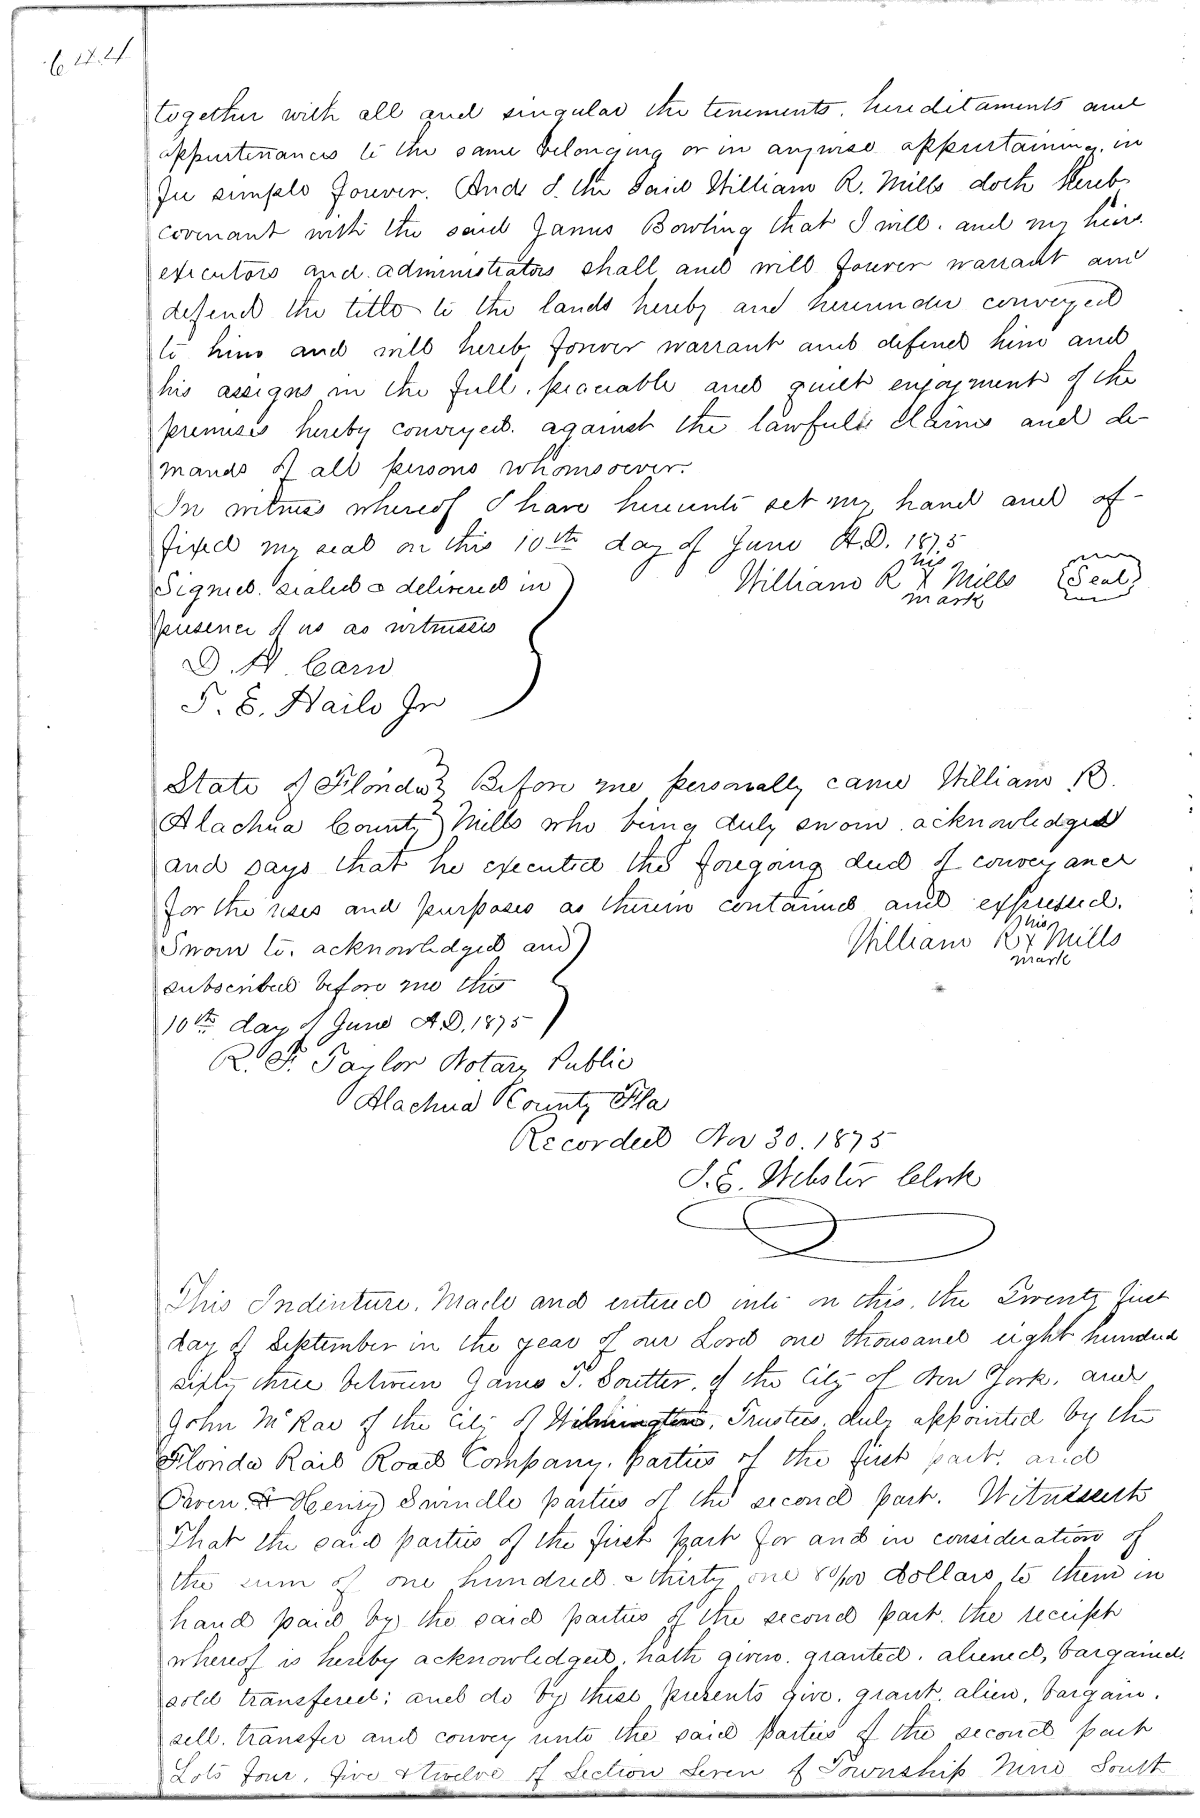 644
together with all and singular the tenements, hereditaments and
appurtenances to the same belonging or in anywise appurtaining, in
fee simple forever. And I. the Said William R. Mills doth hereby
covenant with the said James Bowling that I will. and my heirs.
executors and administrators shall and will forever warrant and
defend the title to the lands hereby and hereinder conveyed
to him and will hereby forever warrant and defend him and
his assigns in the full, peaceable and quiet enjoyment of the
premises hereby conveyed. against the lawfull claims and de-
mands of all persons whomsoever.
In witness whereof I have hereunto set my hand and af-
fixed my seal on this 10th day of June A.D. 1875
Signed. sealed & delivered in
presence of us as witnesses
William R his X mark Mills (Seal)
D. H. Carn
T. E. Haile Jr
State of Florida } Before me personally came William R.
Alachua County } Mills who being duly sworn. acknowledged
and says that he executed the foregoing deed of conveyance
for the uses and purposes as therein contained and expressed.
Sworn to, acknowledged and
subscribed before me this
10th day of June A.D. 1875
William R his X mark Mills
R. F. Taylor Notary Public
Alachua County Fla
Recorded Nov 30. 1875
J. E. Webster Clerk
This Indenture, Made and entered into on this, the Twenty first
day of September in the year of our Lord one thousand eight hundred
sixty three between James T. Soutter, of the City of New York, and
John McRae of the City of Wilmington, Trustees. duly appointed by the
Florida Rail Road Company. parties of the first part, and
Owen & Henry Swindle parties of the second part. Witnesseth
That the said parties of the first part for and in consideration of
the sum of one hundred & thirty one 80/100 dollars to them in
hand paid by the said parties of the second part, the receipt
whereof is hereby acknowledged, hath given. granted. aliened, bargained.
sold transfered; and do by these presents give. grant. alien, bargain.
sell. transfer and convey unto the said parties of the second part
Lots four, five & twelve of Section Seven of Township Nine South